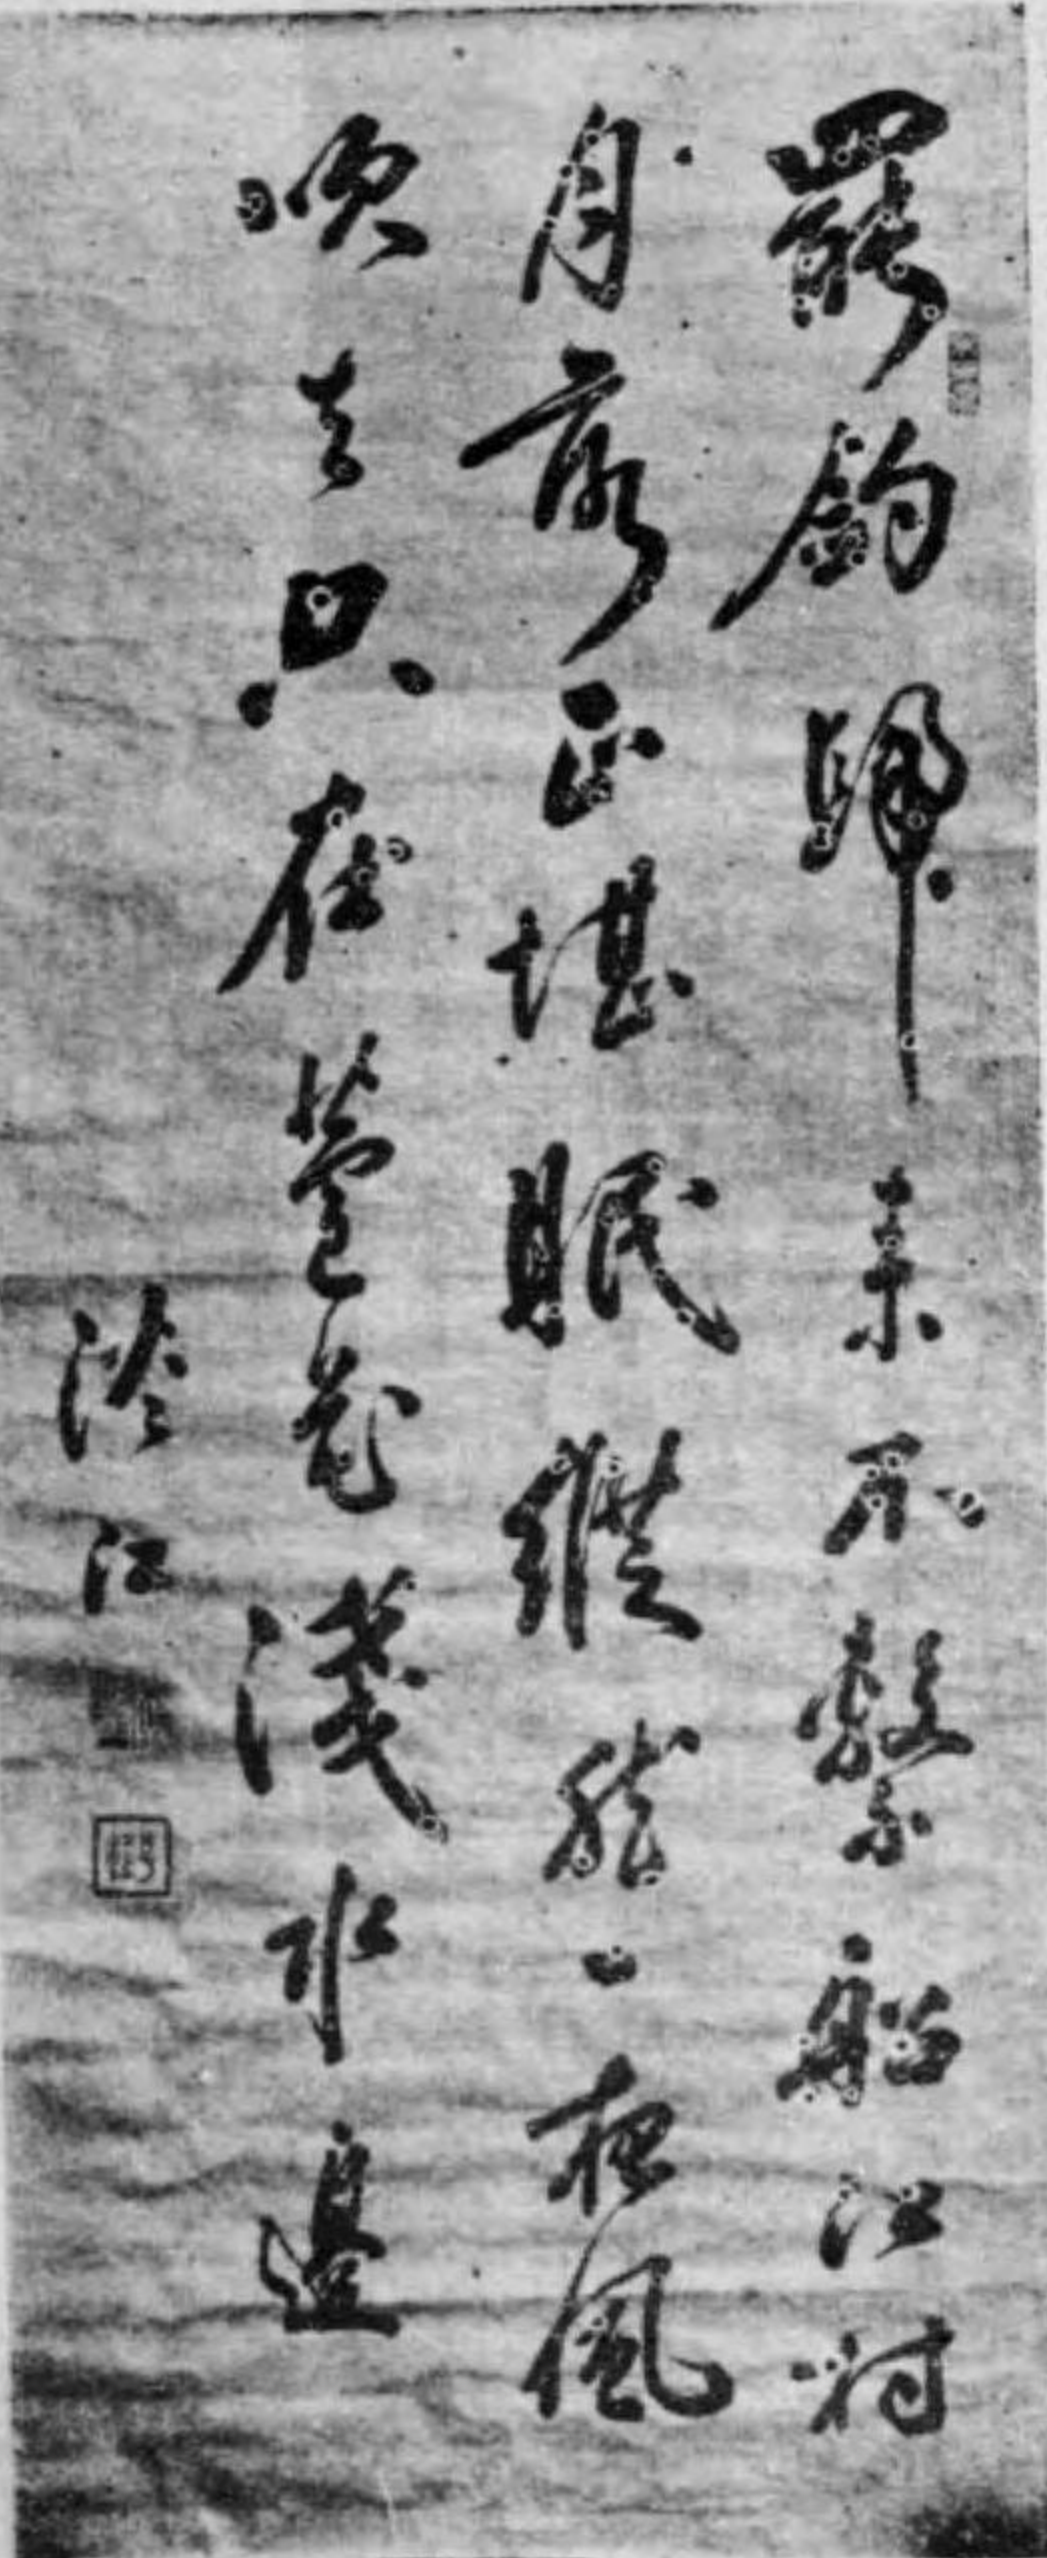 罷釣歸来不繫船江村
月落正堪眠縱然一夜風
吹去只在蘆花淺水邊
淡江